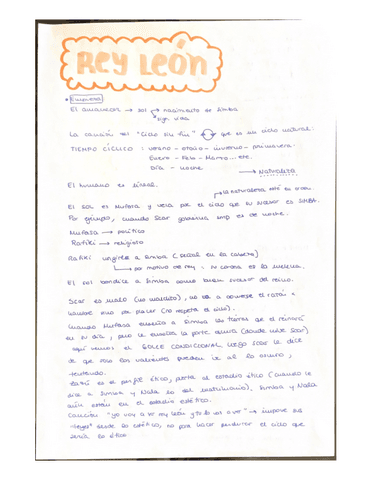 REY LEÓN
Empieza
El amanecer → sol → nacimiento de Simba
→ sign. vida
La canción del "Ciclo sin fin" que es un ciclo natural:
TIEMPO CÍCLICO: verano - otoño - invierno - primavera.
Enero - Feb - Marzo... etc.
Día - noche
→ Naturaleza
El humano es lineal.
→ la naturaleza está en orden.
El sol es Mufasa y vera por el ciclo que su Nuevo es SIMBA.
Por ejemplo, cuando Scar gobierna emp es de noche.
Mufasa → político
Rafiki → religioso
Rafiki unge a Simba (señal en la cabeza)
→ por motivo de rey - no corona es la melena.
El sol bendice a Simba como buen sucesor del reino.
Scar es malo (no maldito), va a comerse el ratón
por placer (no respeta el ciclo).
Cuando Mufasa enseña a Simba las tierras que él reinará
en su día, pero le enseña la parte oscura (donde vive Scar)
aquí vemos el GOLPE CONDICIONAL luego Scar le dice
de que solo los valientes pueden ir a lo oscuro,
tentando.
Zazú es el perfil ético, porta al estadio ético (cuando le
dice a Simba y Nala es del matrimonio). Simba y Nala
aún están en el estadio estético.
Canción "yo voy a ser rey león y tú lo vas a ver" → impone sus
"leyes" desde lo estético, no para hacer perdurar el ciclo que
sería lo ético.